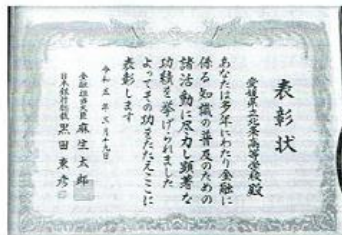 表彰状
愛媛県立北条高等学校殿
あなたは多年にわたり金融に
係る知識の普及のための
諸活動に尽力し顕著な
功績を挙げられました
よってその功をたたえここに
表彰します
令和五年三月十九日
金融担当大臣 麻生太郎
日本銀行総裁 黒田東彦